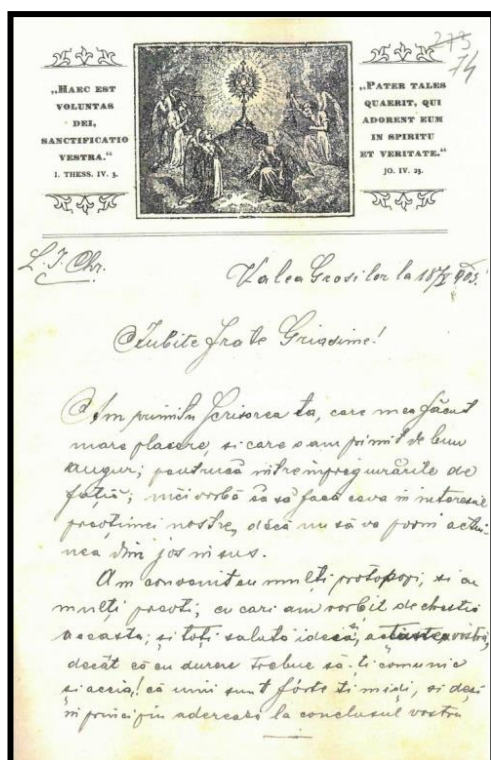 273
74
„HAEC EST
VOLUNTAS
DEI,
SANCTIFICATIO
VESTRA.“
I. THESS. IV. 3.
„PATER TALES
QUAERIT, QUI
ADORENT EUM
IN SPIRITU
ET VERITATE.“
JO. IV. 23.
L. J. Chr.
Valea Grosilor la 18/X 903.
Iubite frate
Am primitu scrisorea ta, care mea făcut
mare placere, si care o am primit de bun
augur; pentrucă intre impregiurările de
fatiă; nici vorbă ca să facă ceva in interesul
preoțimei nostre, décă nu să va porni actiu-
nea din jos in sus.
Am convenit cu multi protopopi, si cu
multi preoti, cu cari am vorbit de chestia
aceasta; si toți saluta ideea, vostră,
decât că cu durere trebue să ti comunic
si aceia! că unii sunt forte timidi, si desi
in principiu aderează la conclusul vostru